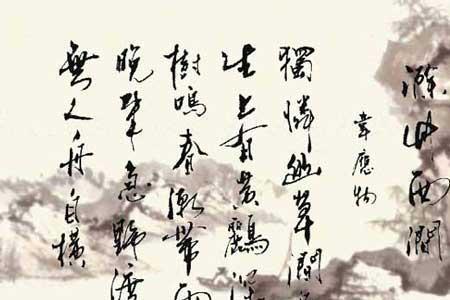 滁州西澗
韋應物
獨憐幽草澗
生上有黃鸝深
樹鳴春潮帶雨
晚來急野渡
無人舟自橫